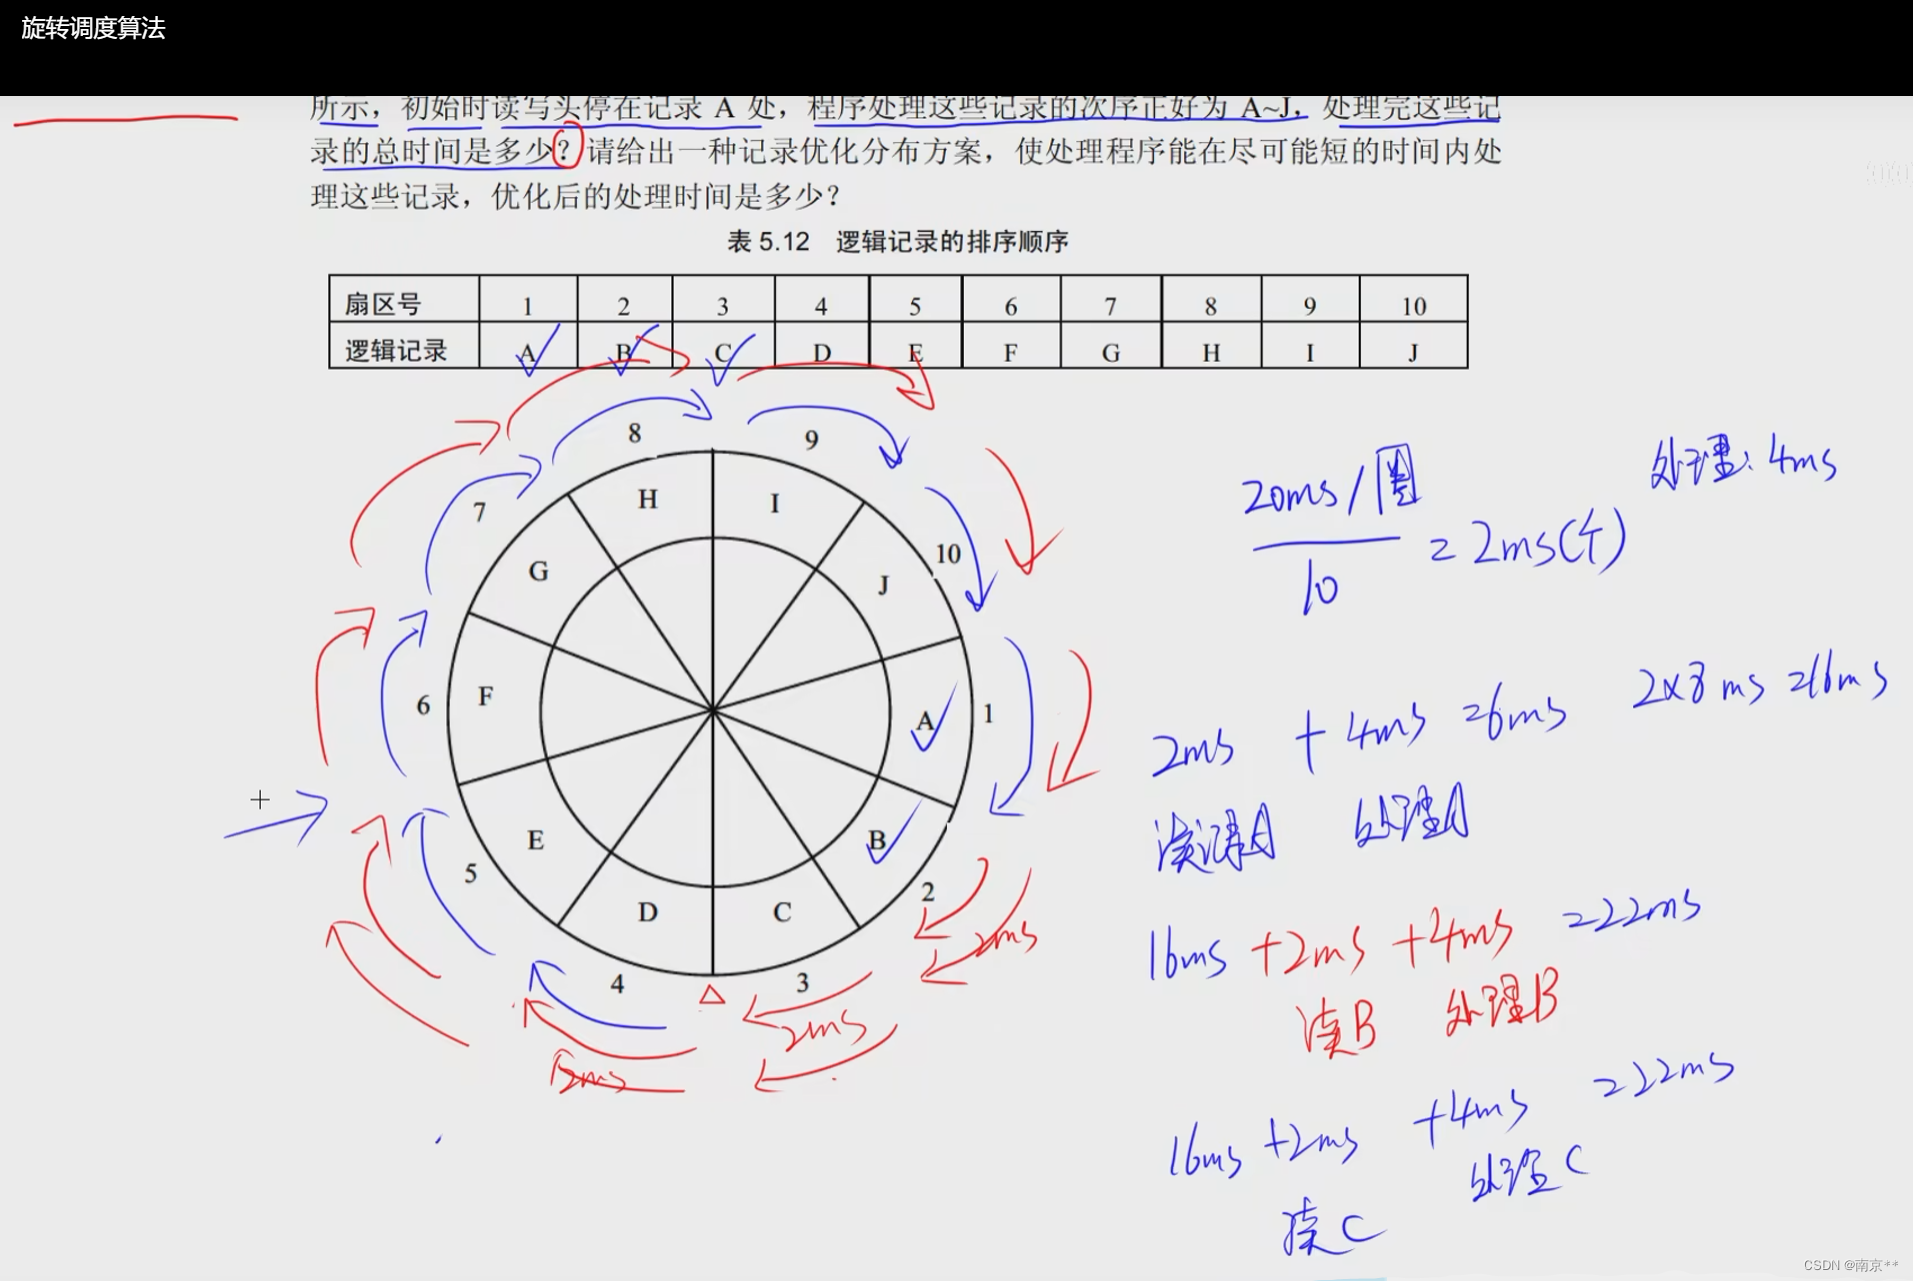 旋转调度算法
所示，初始时读写头停在记录 A 处，程序处理这些记录的次序正好为 A~J，处理完这些记
录的总时间是多少？请给出一种记录优化分布方案，使处理程序能在尽可能短的时间内处
理这些记录，优化后的处理时间是多少？
表 5.12 逻辑记录的排序顺序
扇区号 1 2 3 4 5 6 7 8 9 10
逻辑记录 A B C D E F G H I J
8 9
7 H I 10
G J
6 F A 1
E B
5 D C 2
4 3
2ms
2ms
2ms
处理: 4ms
20ms/圈
10
=2ms(个)
2ms + 4ms =6ms 2x8ms =16ms
读记录A 处理A
16ms +2ms +4ms =22ms
读B 处理B
16ms +2ms +4ms =22ms
读C 处理C
CSDN @南京**